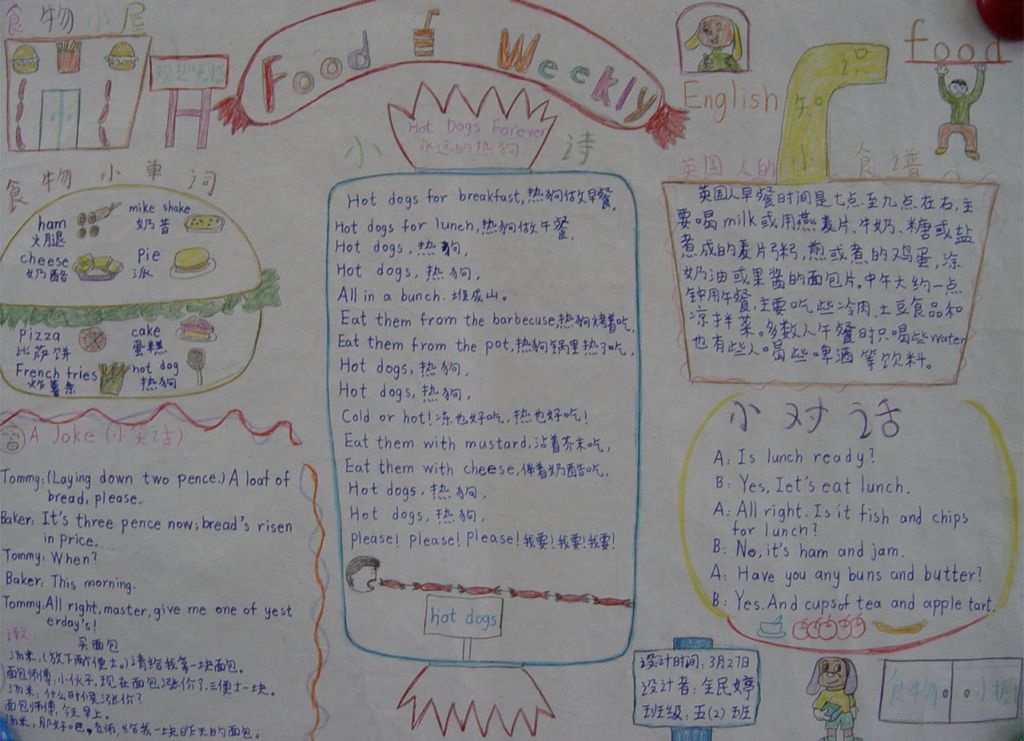 食物小屋
欢迎光临
Food Weekly
English
food
小知识
Hot Dogs Forever
永远的热狗
小诗
英国人的食谱
食物小单词
ham
火腿
mike shake
奶昔
cheese
奶酪
Pie
派
Pizza
比萨饼
cake
蛋糕
French fries
炸薯条
hot dog
热狗
Hot dogs for breakfast,热狗做早餐,
Hot dogs for lunch,热狗做午餐,
Hot dogs,热狗,
Hot dogs,热狗,
All in a bunch.堆成山。
Eat them from the barbecuse,热狗烤着吃,
Eat them from the pot,热狗锅里热了吃,
Hot dogs,热狗,
Hot dogs,热狗,
Cold or hot!冻也好吃,热也好吃!
Eat them with mustard,沾着芥末吃,
Eat them with cheese,伴着奶酪吃,
Hot dogs,热狗,
Hot dogs,热狗,
Please! Please! Please!我要!我要!我要!
hot dogs
英国人早餐时间是七点至九点左右,主
要喝milk或用燕麦片、牛奶、糖或盐
煮成的麦片粥,煎或煮的鸡蛋,涂
奶油或果酱的面包片。中午大约一点
钟用午餐,主要吃些冷肉、土豆食品和
凉拌菜。多数人午餐时只喝些water
也有些人喝些啤酒等饮料。
A Joke(小笑话)
Tommy:(Laying down two pence.) A loaf of
bread, please.
Baker: It's three pence now; bread's risen
in price.
Tommy: When?
Baker: This morning.
Tommy: All right, master, give me one of yest
erday's!
买面包
汤米:(放下两便士。)请给我拿一块面包。
面包师傅:小伙子,现在面包涨价了,三便士一块。
汤米:什么时候涨价?
面包师傅:今天早上。
汤米:那好吧,老师,给我一块昨天的面包。
小对话
A: Is lunch ready?
B: Yes, let's eat lunch.
A: All right. Is it fish and chips
for lunch?
B: No, it's ham and jam.
A: Have you any buns and butter?
B: Yes. And cups of tea and apple tart.
设计时间:3月27日
设计者:全民婷
班级:五(2)班
食物小橱